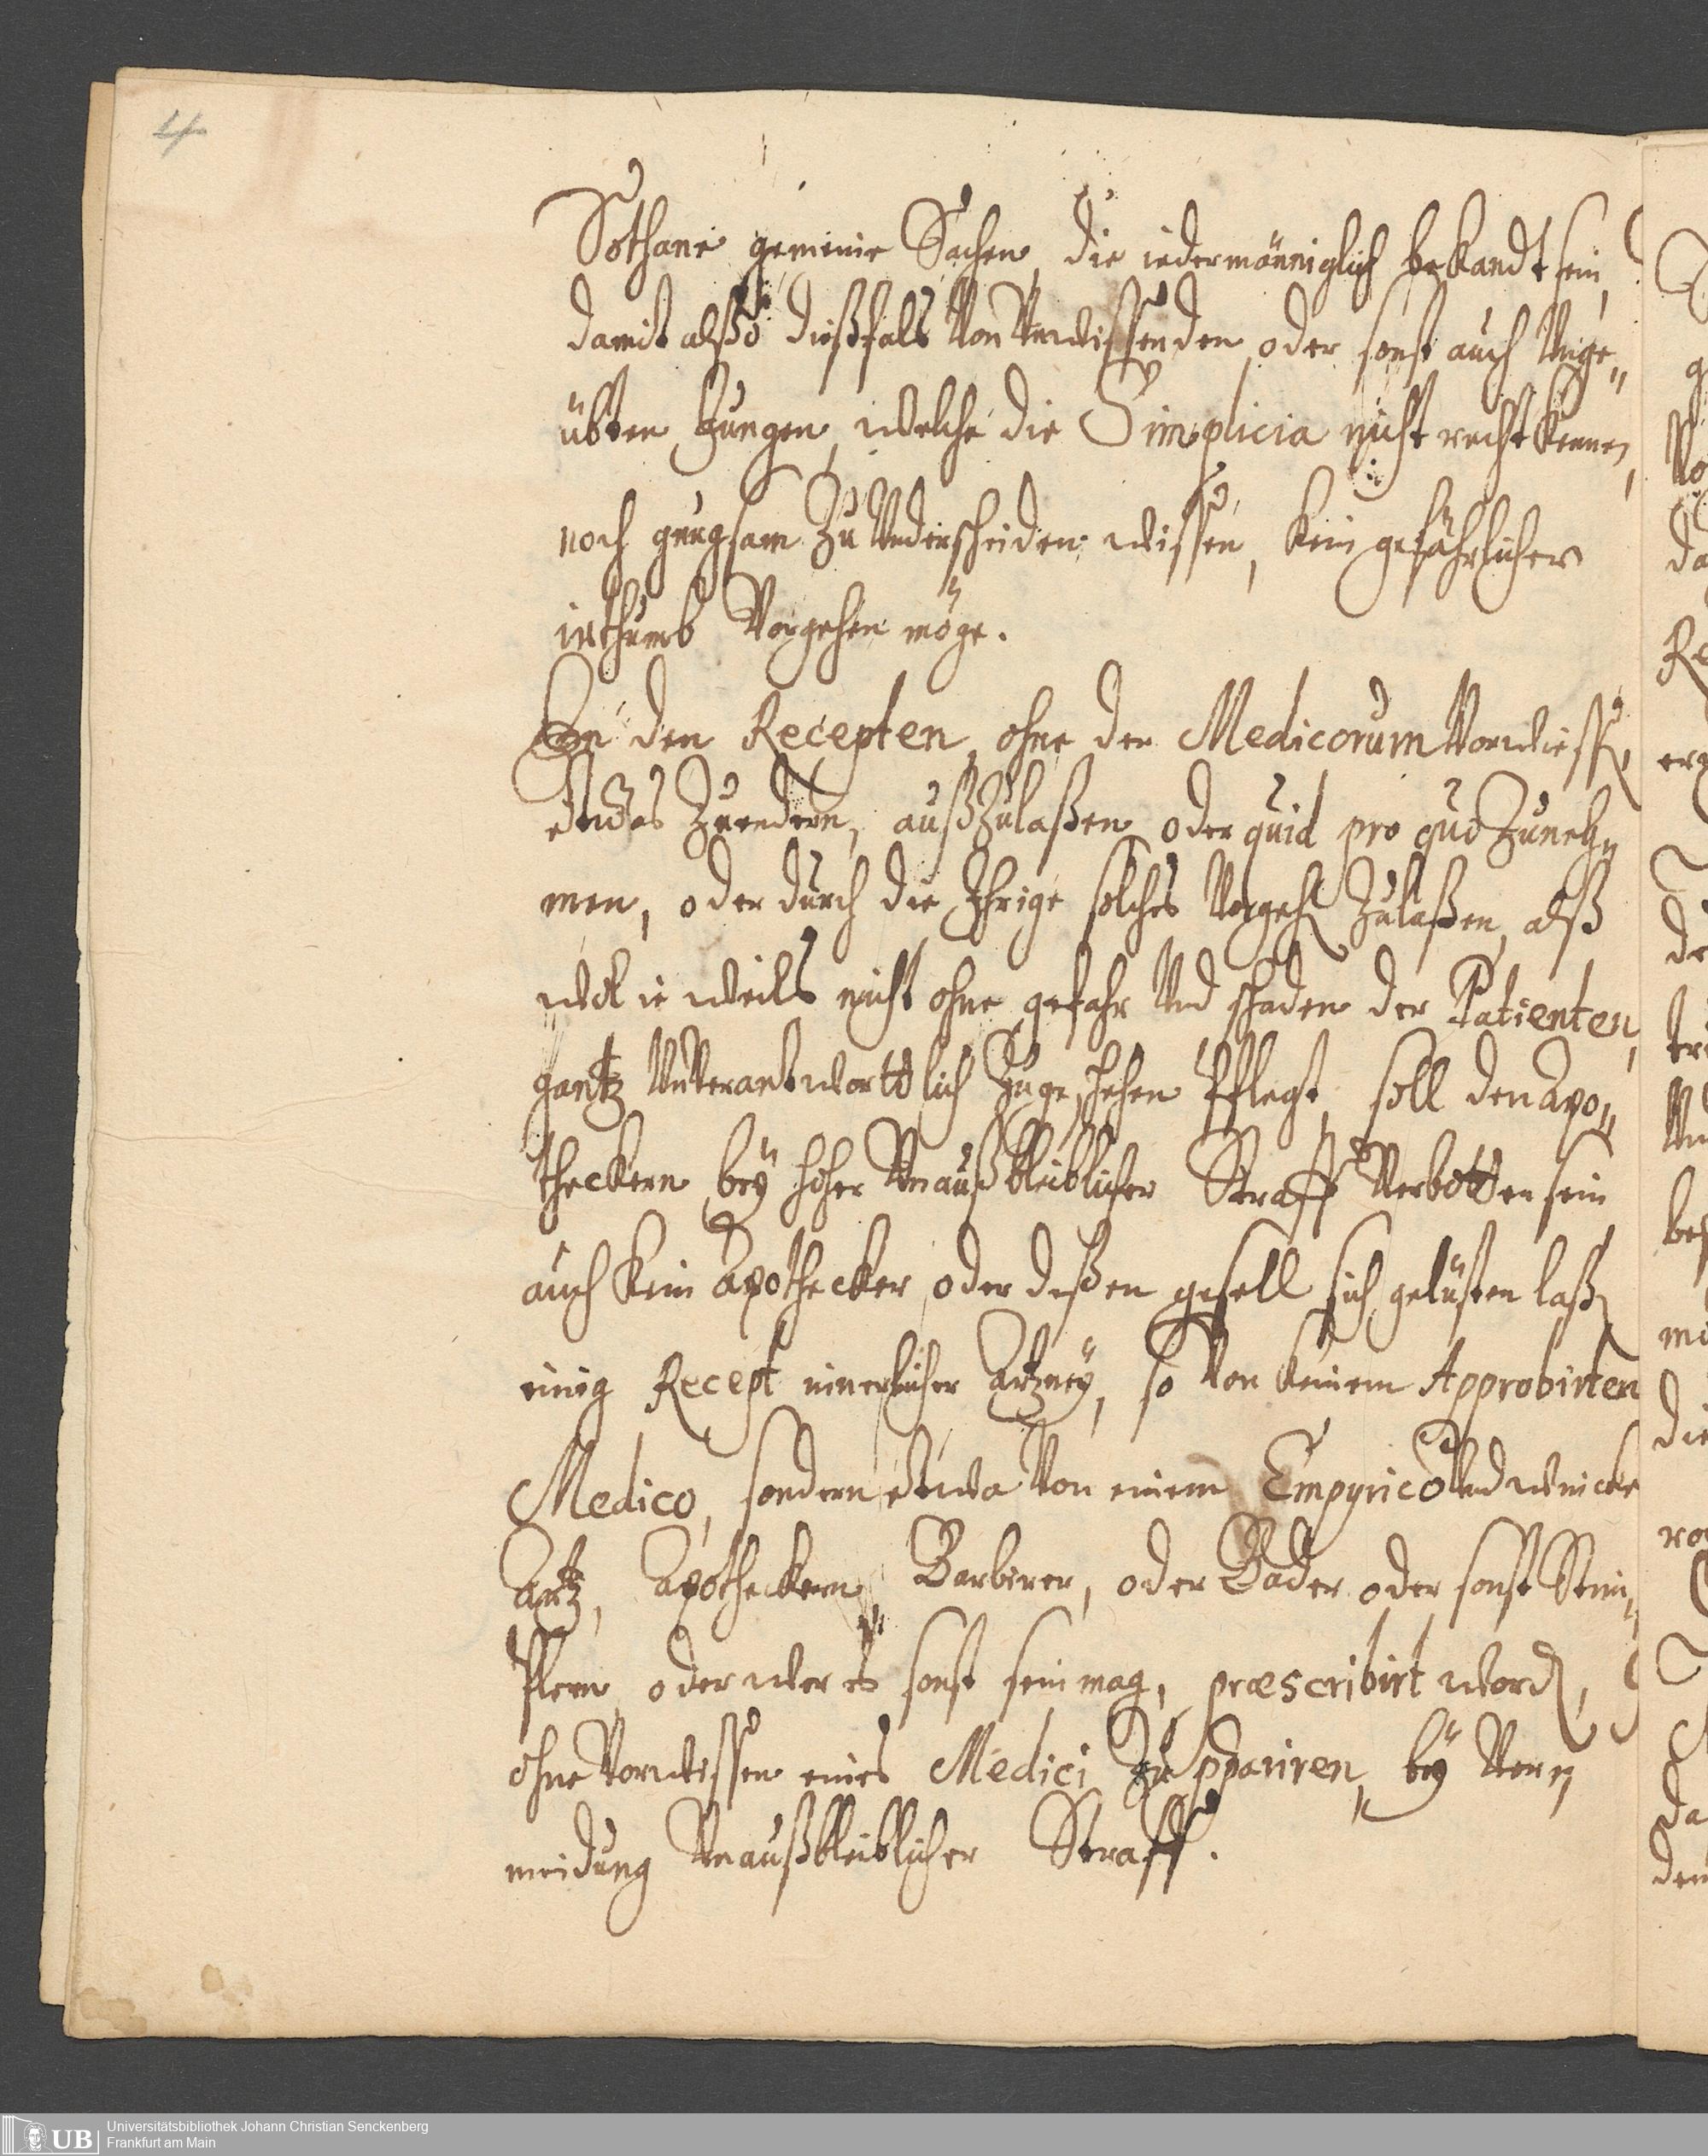 4
Sothane gemeine Sachen, die iedermänniglich bekandt sein,
damit alßo dießfals Von Unwissenden oder sonst auch Unge„
übten Jungen, welche die Simplicia nicht recht kennen,
noch gnugsam zu Underscheiden wissen, kein gefährlicher
irthumb Vorgehen möge.
In den Recepten, ohne der Medicorum Vorwissen,
etwas Zuendern, außZulaßen oder quid pro quo Zuneh„
men, oder durch die Ihrige solches Vorgehen Zulaßen, alß
welches ieweils nicht ohne gefahr Und schaden der Patienten,
gantz UnVerantworttlich Zugeschehen Pflegt, soll den Apo„
theckern bey hoher Unaußbleiblicher Straff Verbotten sein
auch kein Apothecker oder deßen gesell sich gelüsten laßen
einig Recept innerlicher Artzney, so Von keinem Approbirten
Medico, sondern etwa Von einem Empyrico Und winckel
Artz, Apotheckern, Barbirer, oder Bader oder sonst Stim„
Plern, oder wer es sonst sein mag, præscribirt worden,
ohne Vorwissen eines Medici Zu ppariren, bey Ver„
meidung Unaußbleiblicher Straff.
UB
Universitätsbibliothek Johann Christian Senckenberg
Frankfurt am Main